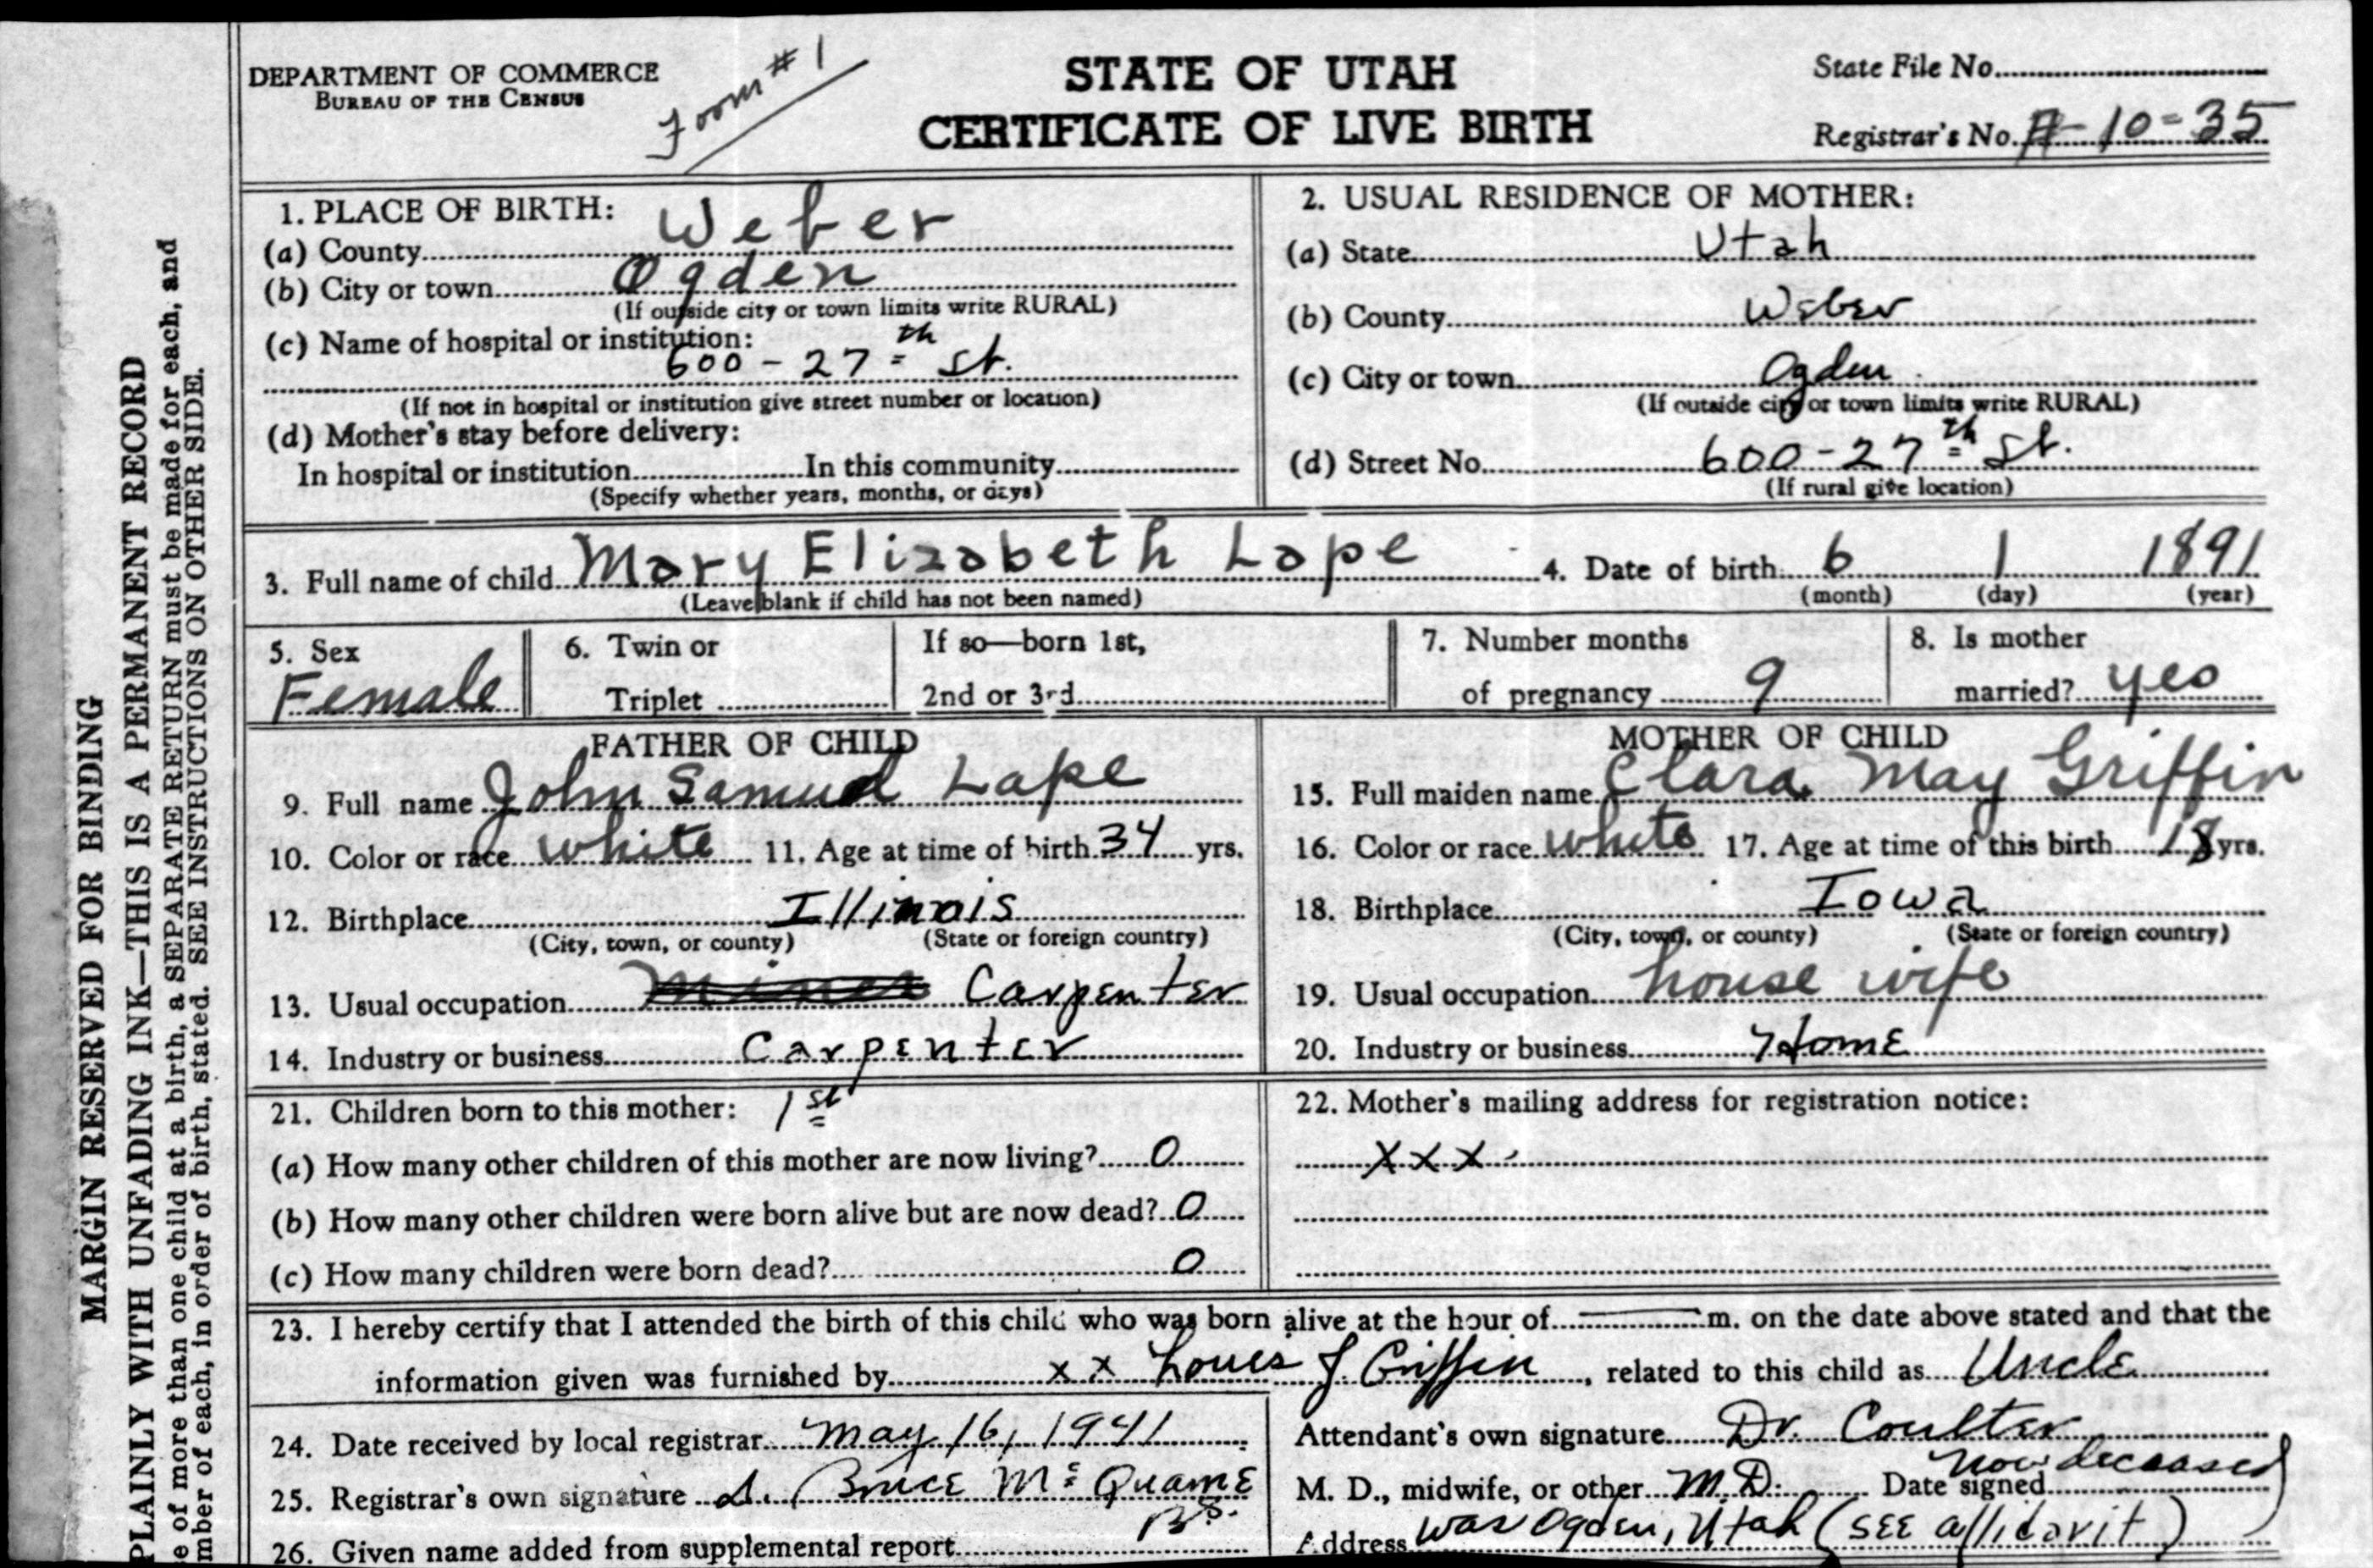 DEPARTMENT OF COMMERCE
BUREAU OF THE CENSUS
Form #1
STATE OF UTAH
CERTIFICATE OF LIVE BIRTH
State File No.
Registrar's No. A-10-35
1. PLACE OF BIRTH:
(a) County Weber
(b) City or town Ogden
(If outside city or town limits write RURAL)
(c) Name of hospital or institution:
600 - 27th St.
(If not in hospital or institution give street number or location)
(d) Mother's stay before delivery:
In hospital or institution In this community
(Specify whether years, months, or days)
2. USUAL RESIDENCE OF MOTHER:
(a) State Utah
(b) County Weber
(c) City or town Ogden
(If outside city or town limits write RURAL)
(d) Street No. 600-27th St.
(If rural give location)
3. Full name of child Mary Elizabeth Lape 4. Date of birth 6 1 1891
(Leave blank if child has not been named) (month) (day) (year)
5. Sex Female
6. Twin or
Triplet
If so—born 1st,
2nd or 3rd
7. Number months
of pregnancy 9
8. Is mother
married? yes
FATHER OF CHILD
9. Full name John Samuel Lape
10. Color or race white 11. Age at time of birth 34 yrs.
12. Birthplace Illinois
(City, town, or county) (State or foreign country)
13. Usual occupation Miner Carpenter
14. Industry or business Carpenter
MOTHER OF CHILD
15. Full maiden name Clara May Griffin
16. Color or race white 17. Age at time of this birth 18 yrs.
18. Birthplace Iowa
(City, town, or county) (State or foreign country)
19. Usual occupation house wife
20. Industry or business Home
21. Children born to this mother: 1st
(a) How many other children of this mother are now living? 0
(b) How many other children were born alive but are now dead? 0
(c) How many children were born dead? 0
22. Mother's mailing address for registration notice:
XXX
23. I hereby certify that I attended the birth of this child who was born alive at the hour of m. on the date above stated and that the
information given was furnished by xx Loues J Griffin, related to this child as Uncle
24. Date received by local registrar May 16, 1941
25. Registrar's own signature Bruce McQuarrie
BS.
26. Given name added from supplemental report
Attendant's own signature Dr. Coulter
M. D., midwife, or other M.D. Date signed now deceased
Address was Ogden, Utah (SEE affidavit)
MARGIN RESERVED FOR BINDING
PLAINLY WITH UNFADING INK—THIS IS A PERMANENT RECORD
e of more than one child at a birth, a SEPARATE RETURN must be made for each, and
mber of each, in order of birth, stated. SEE INSTRUCTIONS ON OTHER SIDE.